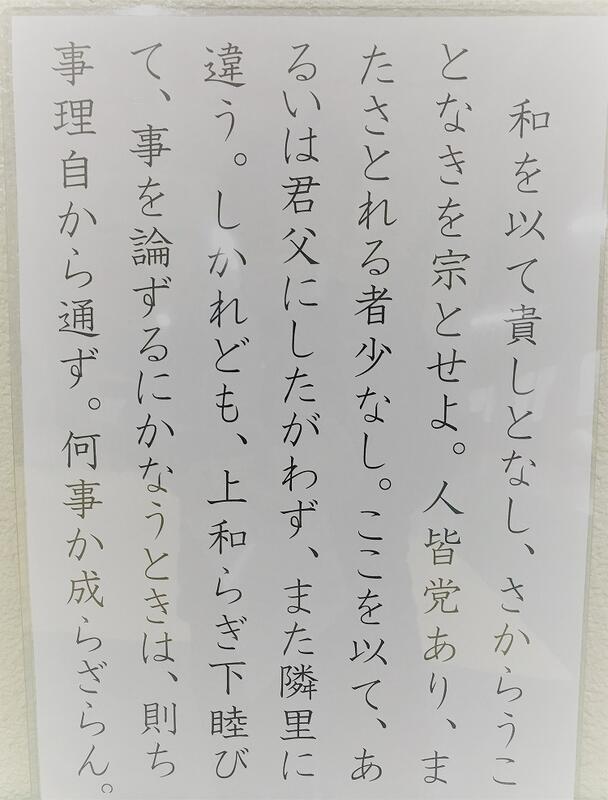 和を以て貴しとなし、さからうこ
となきを宗とせよ。人皆党あり、ま
たさとれる者少なし。ここを以て、あ
るいは君父にしたがわず、また隣里に
違う。しかれども、上和らぎ下睦び
て、事を論ずるにかなうときは、則ち
事理自から通ず。何事か成らざらん。